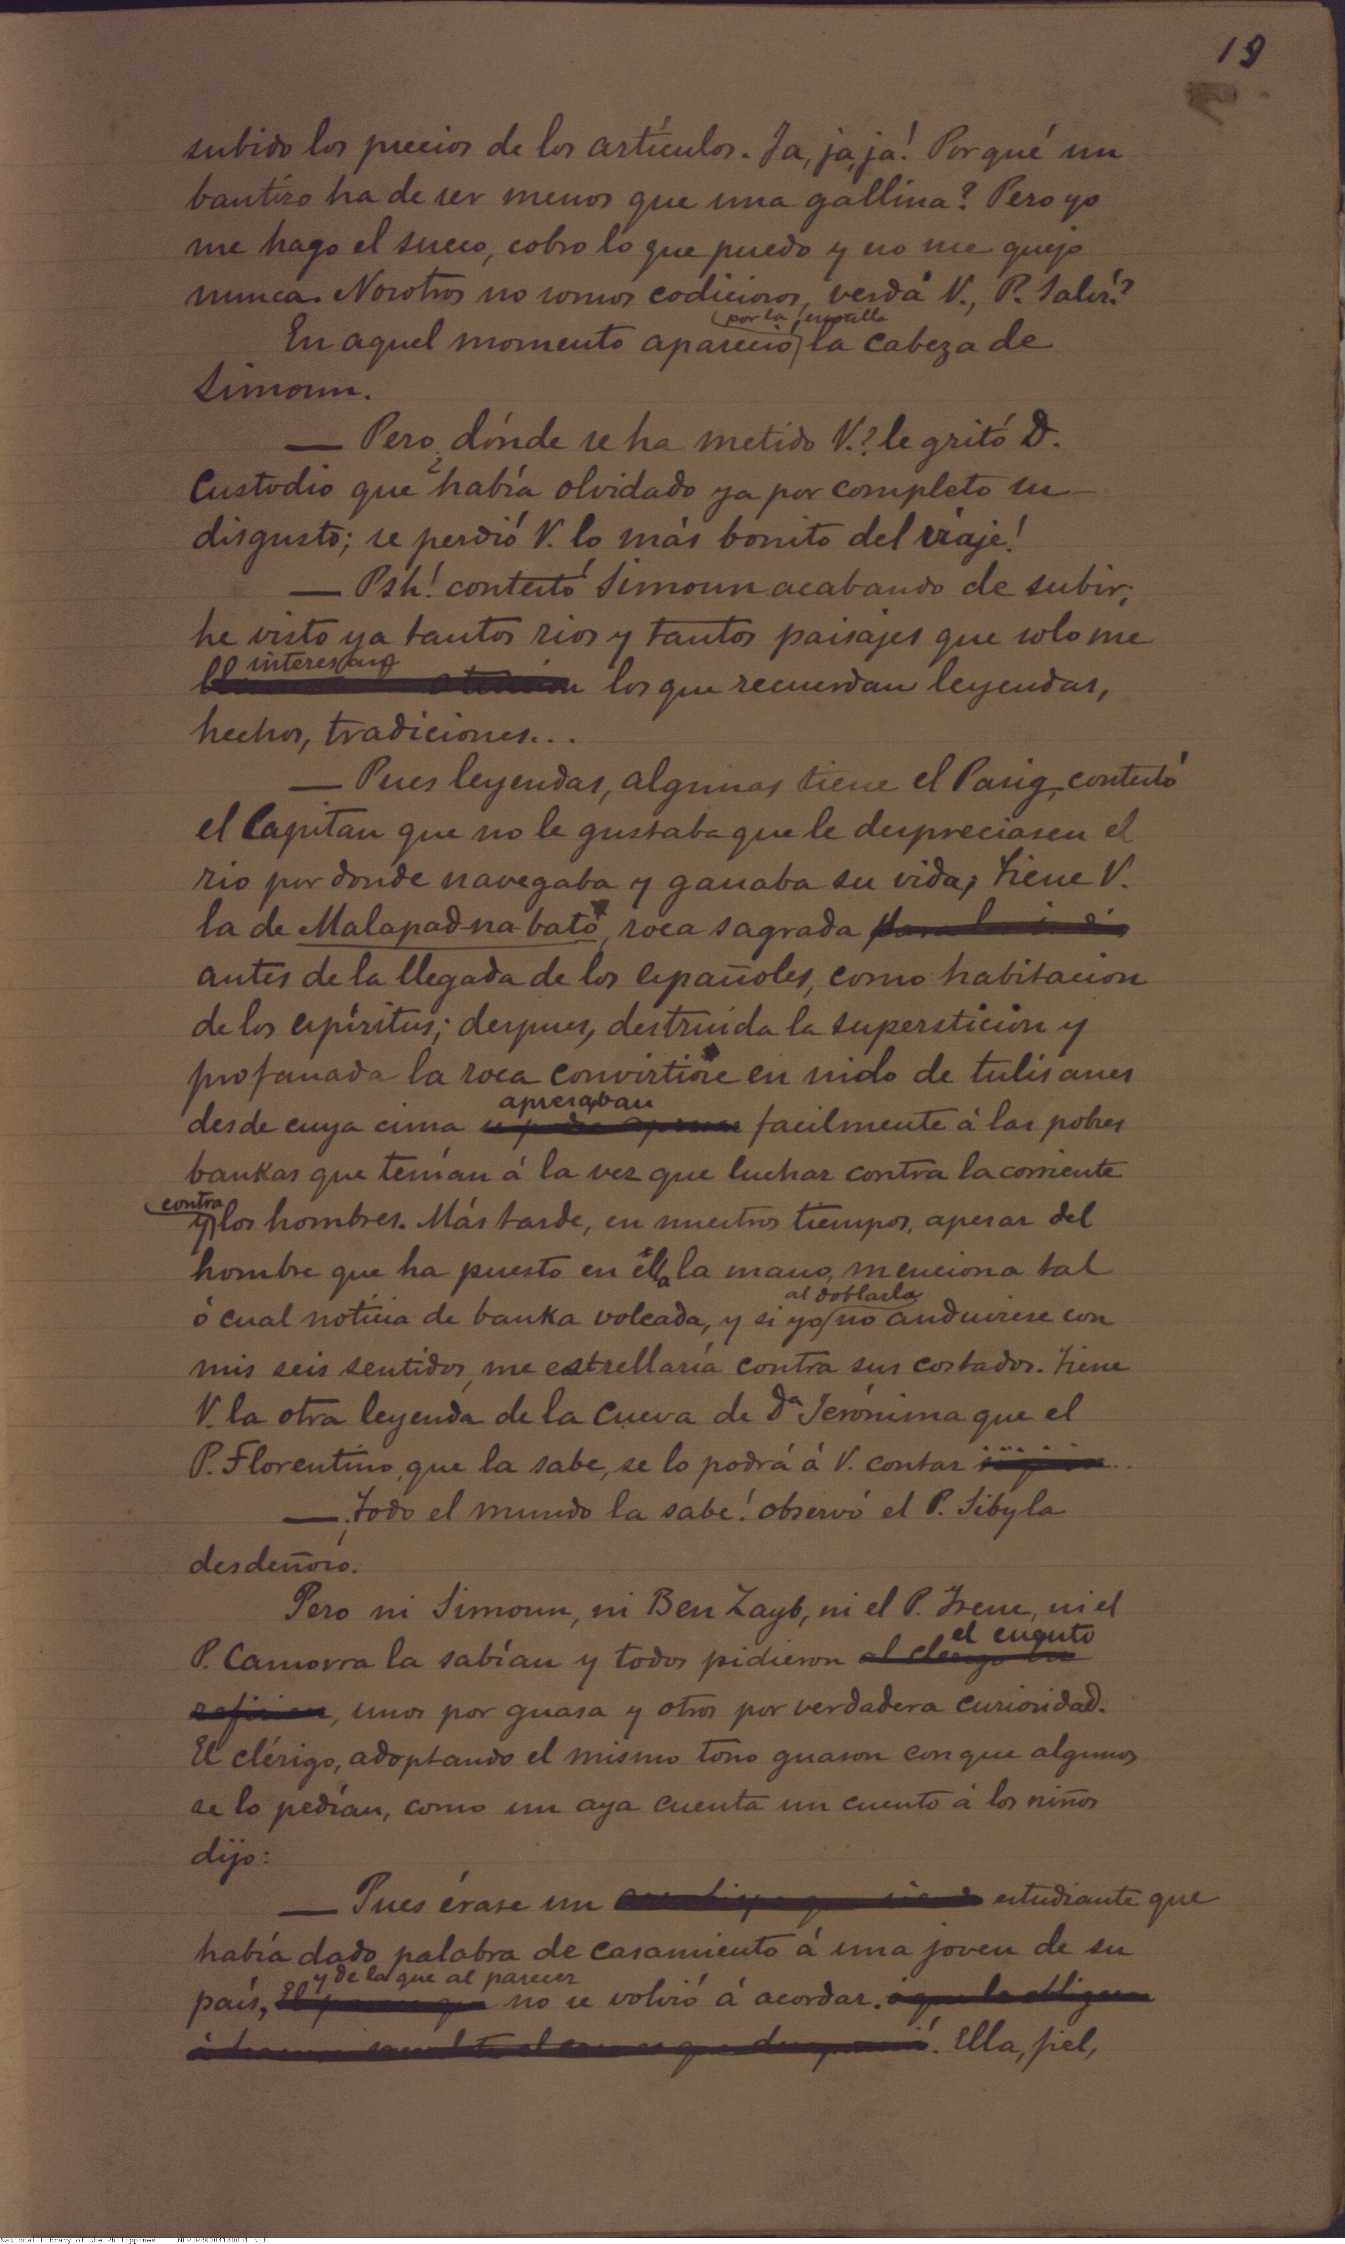 19
subido los precios de los artículos. Ja, ja, já! Porqué un
bautizo ha de ser menos que una gallina? Pero yo
me hago el sueco, cobro lo que puedo y no me quejo
nunca. Nosotros no somos codiciosos, verdá V., P. Salví?
por la escotilla
En aquel momento apareció la cabeza de
Simoun.
— Pero ¿dónde se ha metido V.? le gritó D.
Custodio que había olvidado ya por completo su
disgusto; se perdió V. lo más bonito del viaje!
— Psh! contestó Simoun acabando de subir;
he visto ya tantos rios y tantos paisajes que solo me
interesan
atención los que recuerdan leyendas,
hechos, tradiciones...
— Pues leyendas, algunas tiene el Pasig, contestó
el Capitan que no le gustaba que le despreciasen el
rio por donde navegaba y ganaba su vida; tiene V.
la de Malapad-na-bató, roca sagrada
antes de la llegada de los españoles, como habitacion
de los espíritus; despues, destruida la supersticion y
profanada la roca convirtióse en nido de tulisanes
apresaban
desde cuya cima facilmente á las pobres
bankas que tenían á la vez que luchar contra la corriente
contra
y los hombres. Más tarde, en nuestros tiempos, apesar del
hombre que ha puesto en ella la mano, menciona tal
ó cual noticia de banka volcada, y si yo no anduviese con
al doblarla
mis seis sentidos, me estrellaría contra sus costados. Tiene
V. la otra leyenda de la cueva de Dª Jerónima que el
P. Florentino, que la sabe, se lo podrá á V. contar
— ¡Todo el mundo la sabe! observó el P. Sibyla
desdeñoso.
Pero ni Simoun, ni Ben Zayb, ni el P. Irene, ni el
el cuento
P. Camorra la sabían y todos pidieron al clérigo
, unos por guasa y otros por verdadera curiosidad.
El clérigo, adoptando el mismo tono guason con que algunos
se lo pedían, como un aya cuenta un cuento á los niños
dijo:
— Pues érase un estudiante que
había dado palabra de casamiento á una joven de su
y de la que al parecer
país, no se volvió á acordar.
. Ella, fiel,